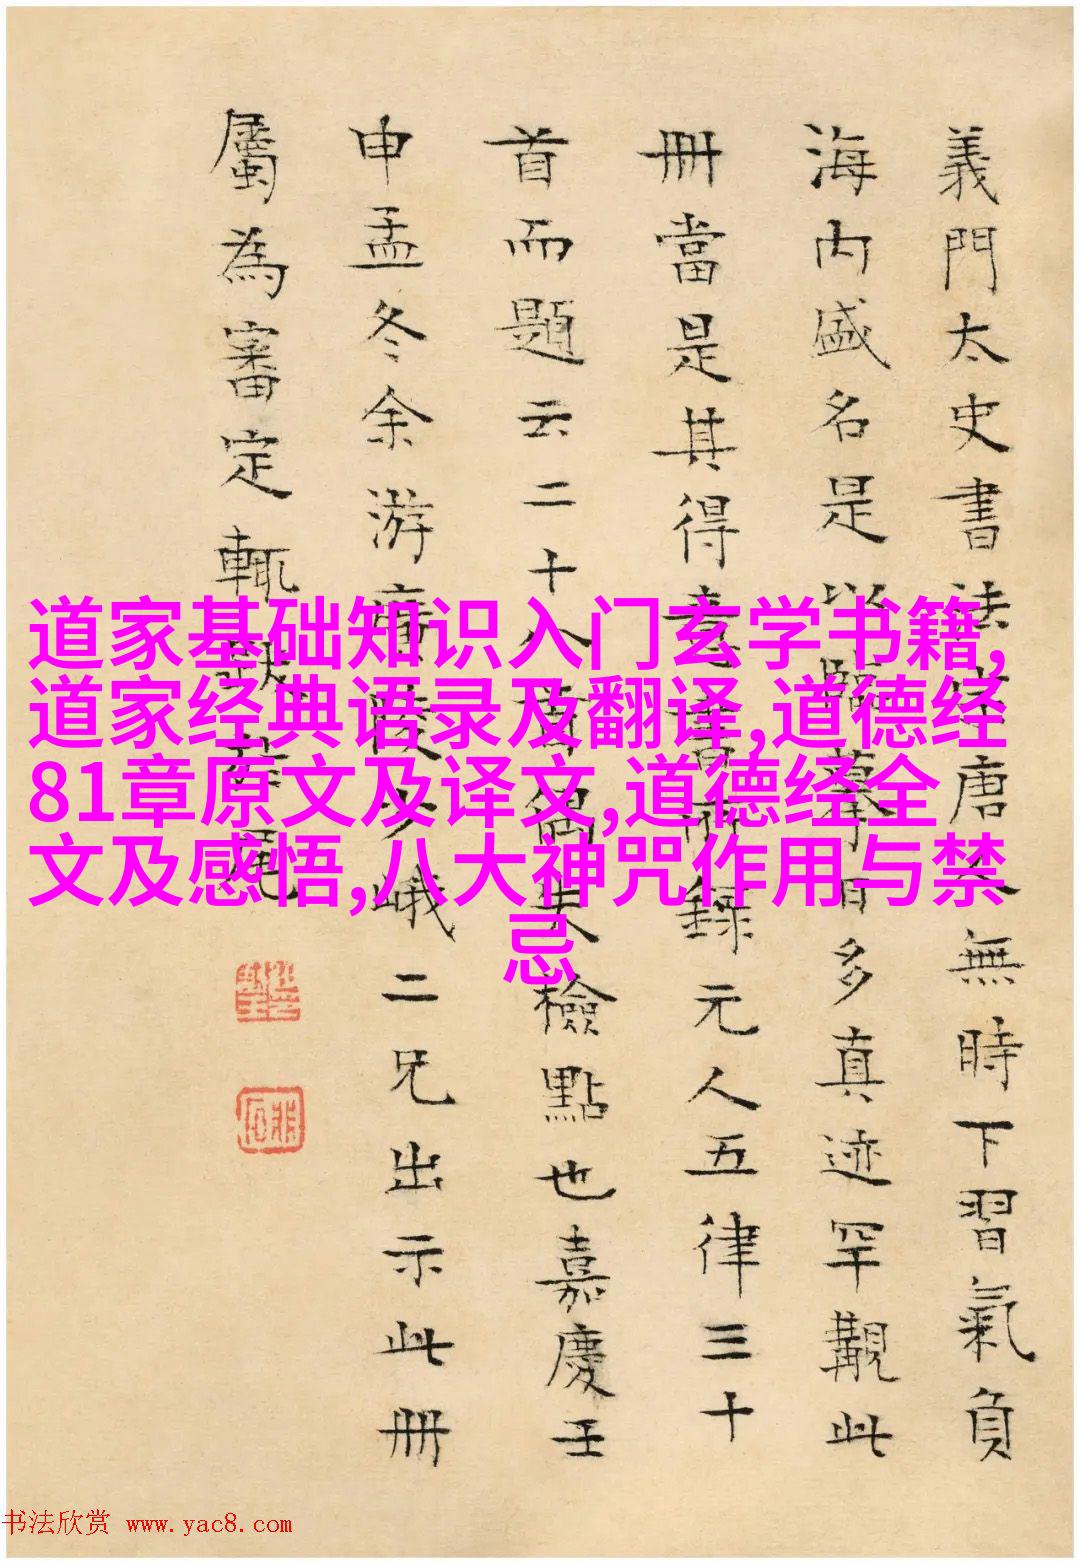 義門太史書法宗唐人無時下習氣負
海内盛名是以臨摹日多真迹罕覯此
冊當是其得意書所錄元人五律三十
首而題云二十八首偶失檢點也嘉慶壬
申孟冬余游廣陵少峨二兄出示此冊
屬為審定輒跋尾
道家基础知识入门玄学书籍,
道家经典语录及翻译,道德经
81章原文及译文,道德经全
文及感悟,八大神咒作用与禁
忌
书法欣赏 www.yac8.com